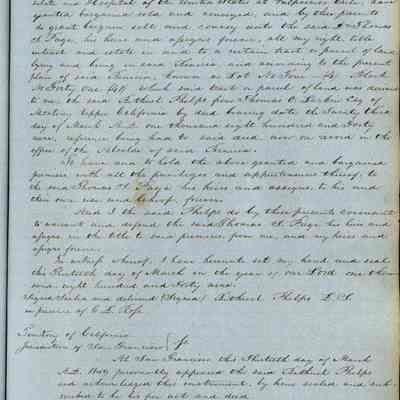 estate and Hospital of the United States at Valparaiso Chili, have
granted bargained sold and conveyed, and by these presents
do grant bargain, sell and convey unto the said Dr Thomas
A. Page, his heirs and assigns forever, all my right, title
interest and estate in and to a certain tract or parcel of land
lying and being in said Francisco, and according to the present
plan of said Francisco known as Lot No Four (4) Block
No Forty One (41) which said tract or parcel of land was deeded
to me the said Bethuel Phelps from Thomas O. Larkin Esq of
Monterey Upper California by deed bearing date the
day of March A.D. one thousand eight hundred and Forty
nine, reference being had to said deed now on record in the
office of the Alcalde of said Francisco.
To have and to hold the above granted and bargained
premises with all the privileges and appurtenances thereof, to
the said Thomas A. Page his heirs and assigns, to his and
their own use and behoof forever.
And I the said Phelps do by these presents covenant
to warrant and defend the said Thomas A. Page his heirs and
assigns in the title to said premises from me, and my heirs and
assigns forever.
In witness whereof, I have hereunto set my hand and seal
this Thirtieth day of March in the year of our Lord one thou
sand eight hundred and Forty nine.
Signed Sealed and delivered (Signed) Bethuel Phelps L.S.
in presence of C. L. Ross
Territory of California
Jurisdiction of San Francisco
At San Francisco this Thirtieth day of March
A.D. 1849 personally appeared the said Bethuel Phelps
and acknowledged this instrument, by him sealed and sub-
scribed to be his free act and deed